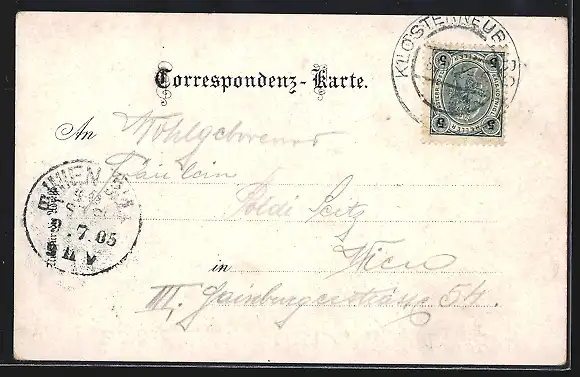 KLOSTERNEUB
Correspondenz-Karte.
An Wohlgeborenes
Fräulein
Poldi Seitz
in Wien
III. Hainburgerstrasse 54.
WIEN
9.7.05
5 5
5 5